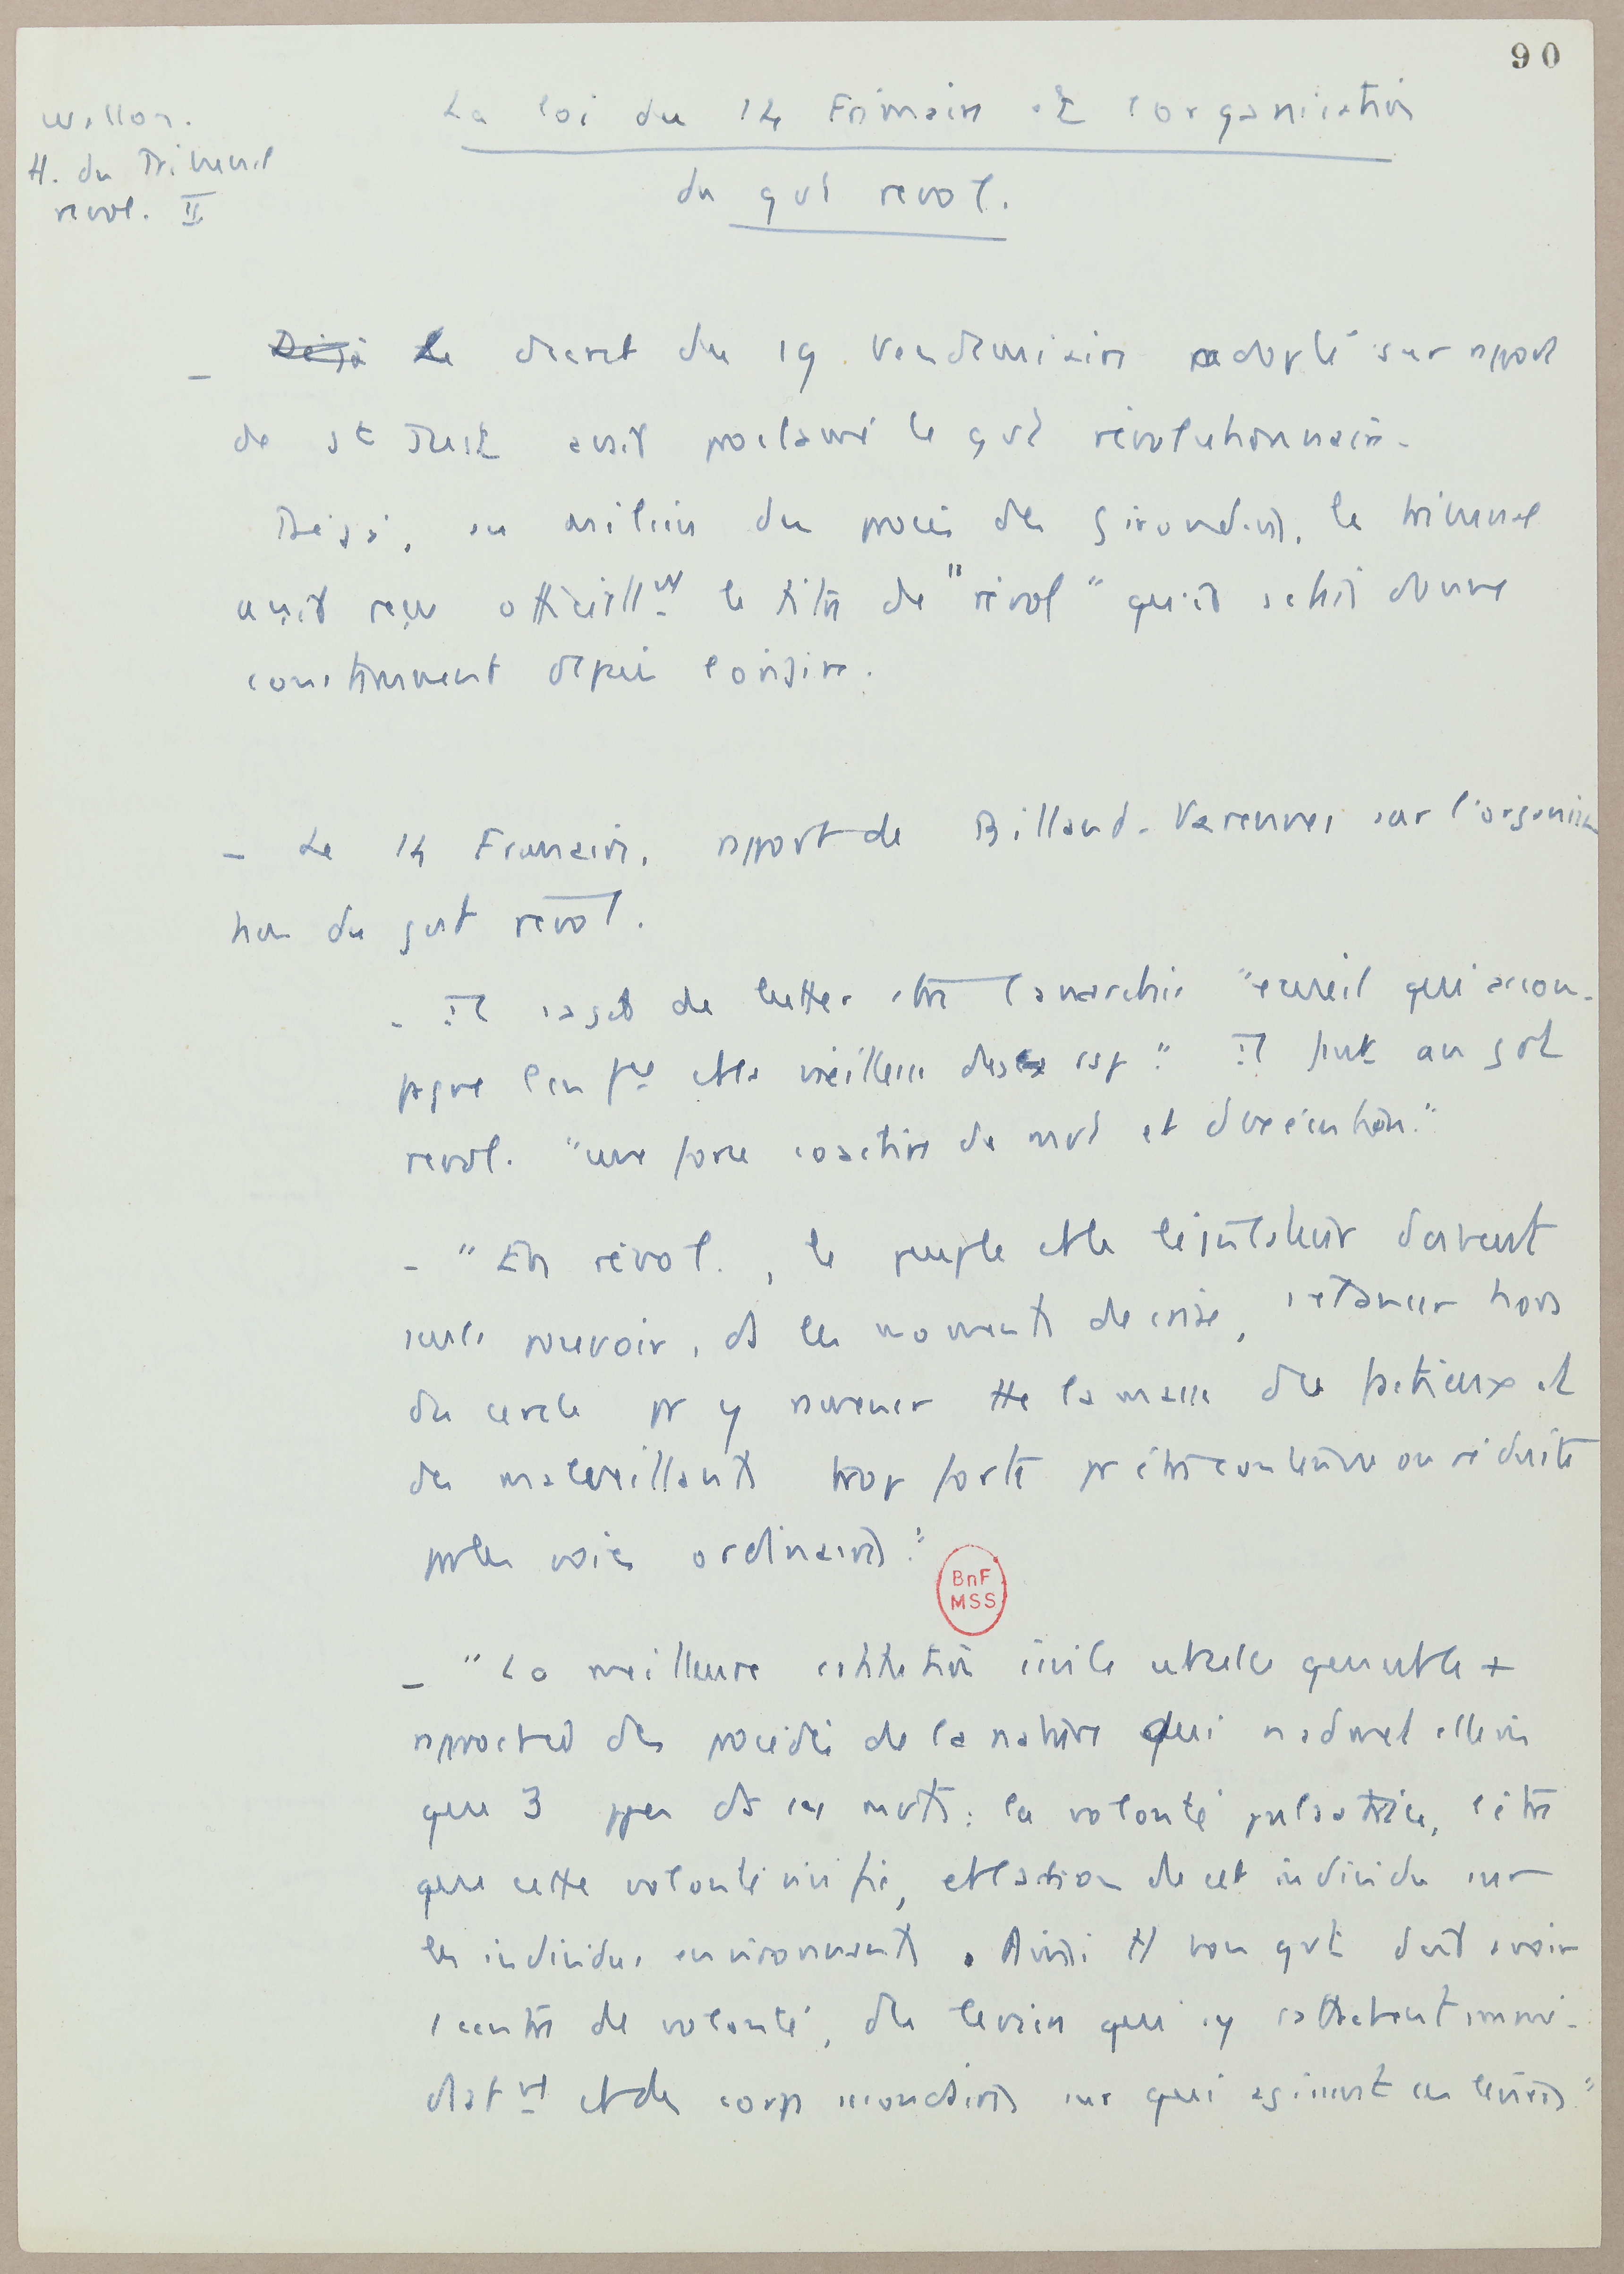 90
Wallon.
H. du Tribunal
révol. II
La loi du 14 Frimaire et l'organisation
du gvt revol.
- Déjà Le decret du 19 Vendemiaire adopté sur rpport
de St Just avait proclamé le gvt révolutionnaire.
Déjà, au milieu du procès des girondins, le tribunal
avait reçu officiellnt le titre de "révol" qu'on lui donne
constamment depuis l'origine.
- Le 14 Frimaire, rpport de Billaud-Varennes sur l'organisa
tion du gvt révol.
- Il s'agit de lutter ctre l'anarchie "écueil qui accom-
pagne l'enfce et la vieillesse des esp" Il faut au gvt
revol. "une force coactive de mvt et d'exécution."
- "En révol., le peuple et le législateur doivent
seuls pouvoir, ds les moments de crise, s'élancer hors
du cercle pr y ramener tte la masse des factieux et
des malveillants trop forte pr être contenue ou réduite
pr les voies ordinaires."
BnF
MSS
- "La meilleure cstitution civile est celle qui est le +
rpprochée des procédés de la nature qui n'admet elle m
que 3 ppes ds ses mvts : la volonté pulsatrice, l'être
que cette volonté vivifie, et l'action de cet individu sur
les individus environnants. Ainsi tt bon gvt doit avoir
1 centre de volonté, des leviers qui s'y rattachent immé-
diatnt et des corps secondaires sur qui agissent ces leviers"